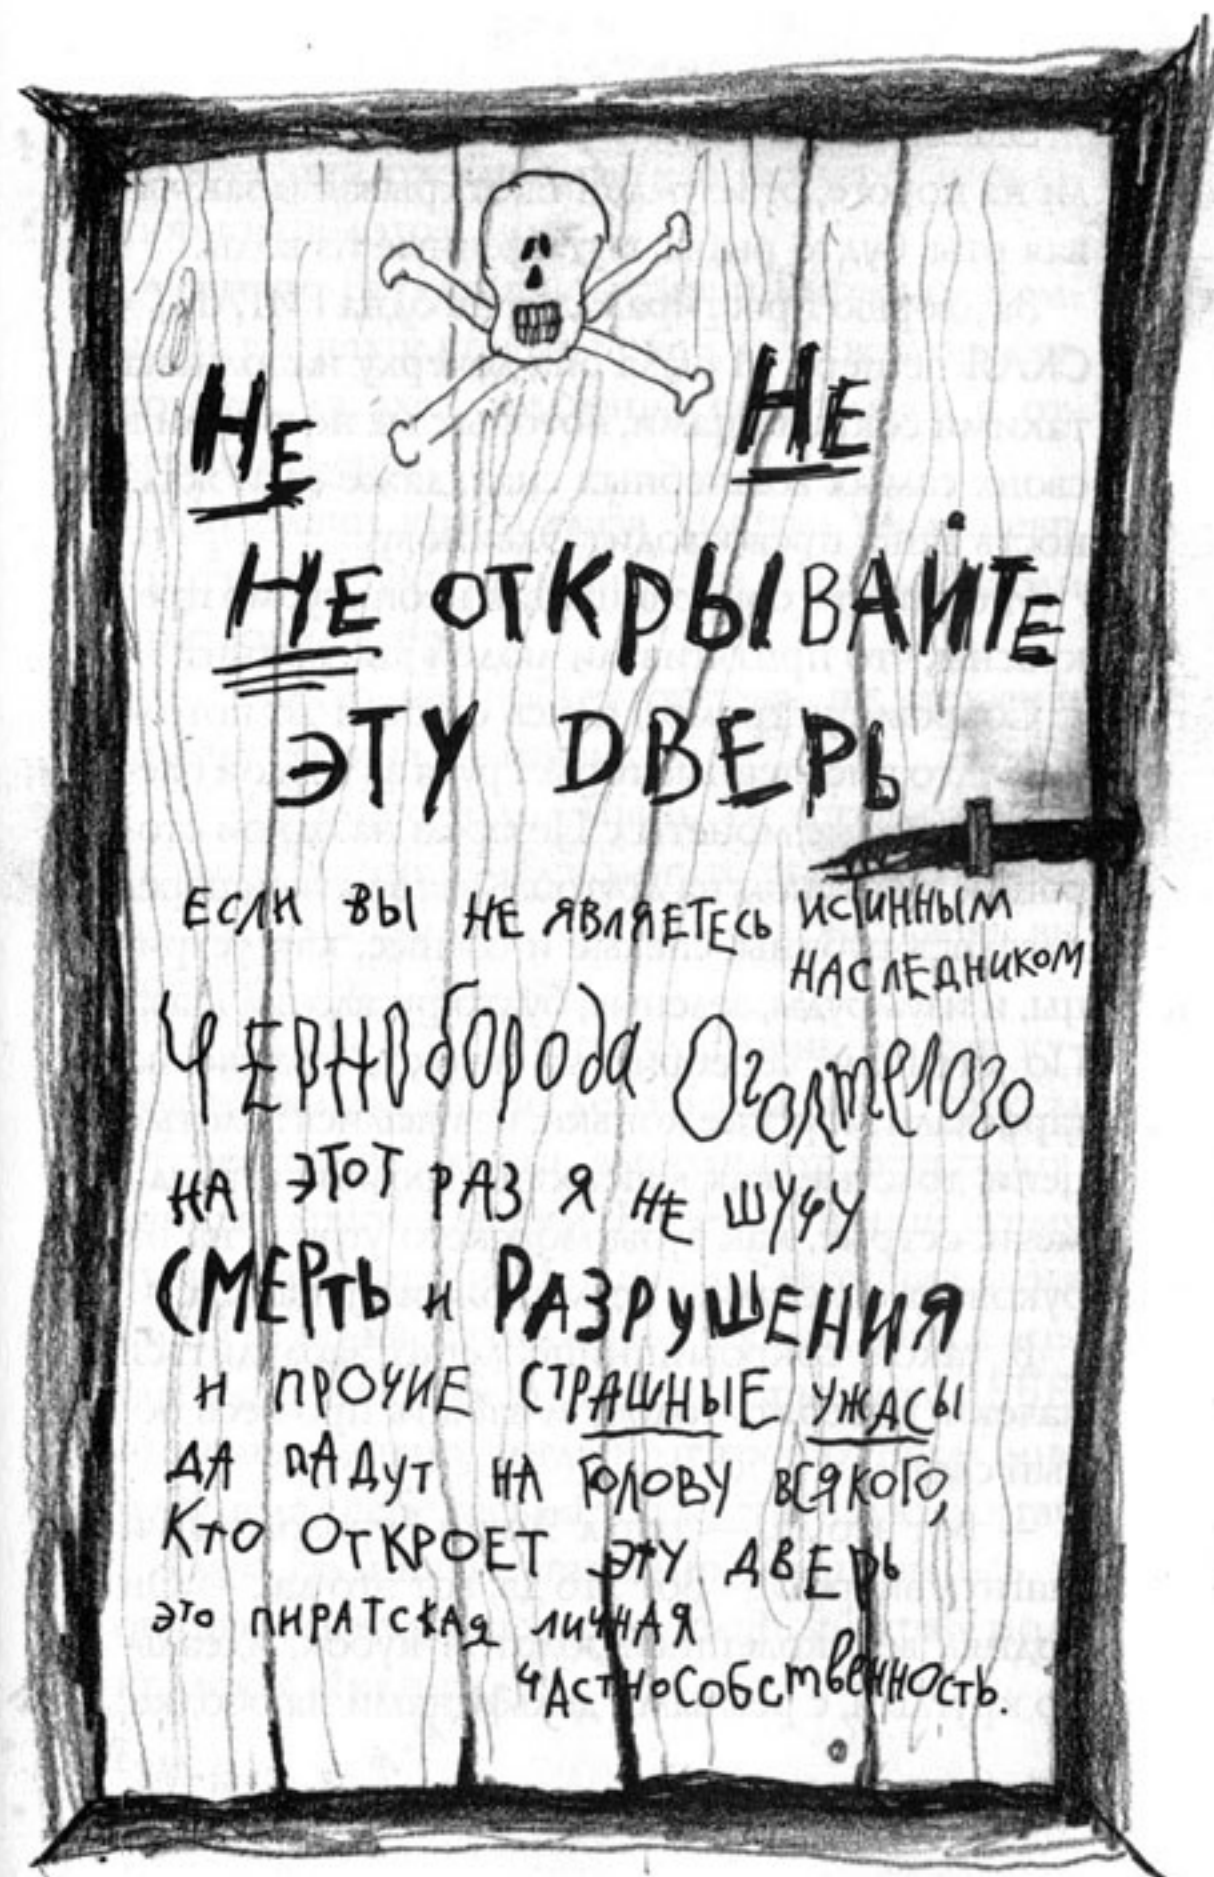 НЕ НЕ
НЕ ОТКРЫВАЙТЕ
ЭТУ ДВЕРЬ
ЕСЛИ ВЫ НЕ ЯВЛЯЕТЕСЬ ИСТИННЫМ
НАСЛЕДНИКОМ
ЧЕРНОбОРОда ОголтЕлого
НА ЭТОТ РАЗ Я НЕ ШУЧУ
СМЕРТЬ и РАЗРУШЕНИЯ
И ПРОЧИЕ СТРАШНЫЕ УЖАСЫ
ДА ПАДУТ НА ГОЛОВУ ВСЯКОГО,
КТО ОТКРОЕТ ЭТУ ДВЕРЬ
ЭТО ПИРАТСКАЯ ЛИЧНАЯ
ЧАСТНОСОБСТВЕННОСТЬ.